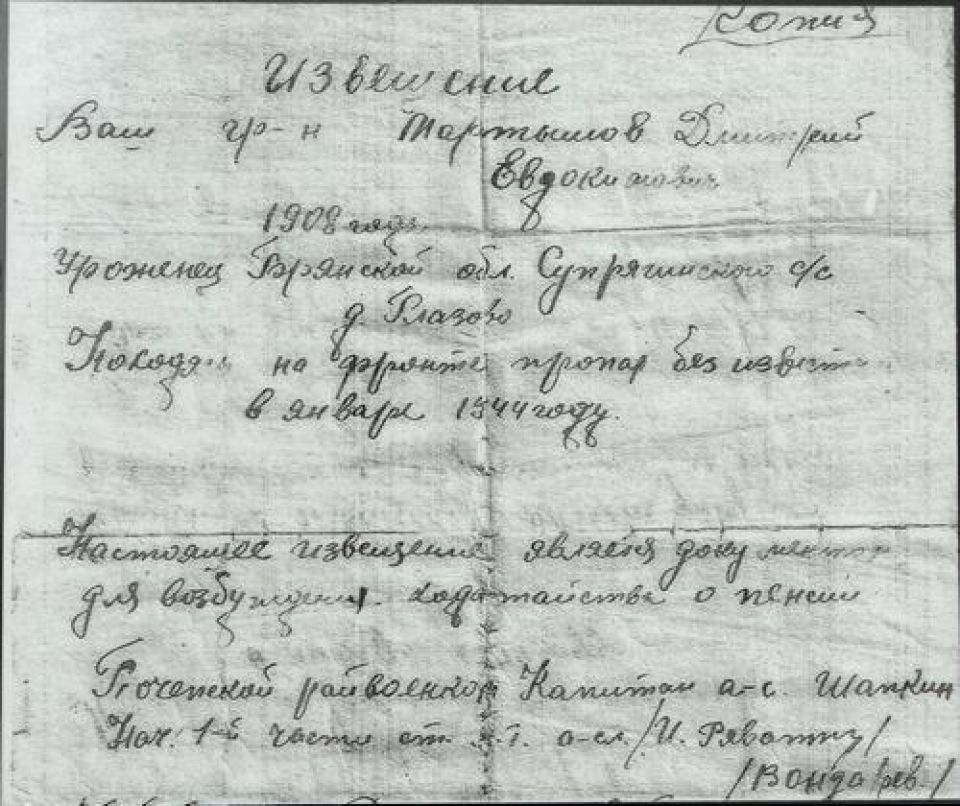 Копия
Извещение
Ваш гр-н Мартышов Дмитрий
Евдокимович
1908 года
Уроженец Брянской обл. Супрягинского с/с
д. Глазово
Находясь на фронте пропал без вести
в январе 1944 году.
Настоящее извещение является документом
для возбуждения ходатайства о пенсии
Почепской райвоенком Капитан а-с. Шапкин
Нач. 1-й части ст. а-сл.